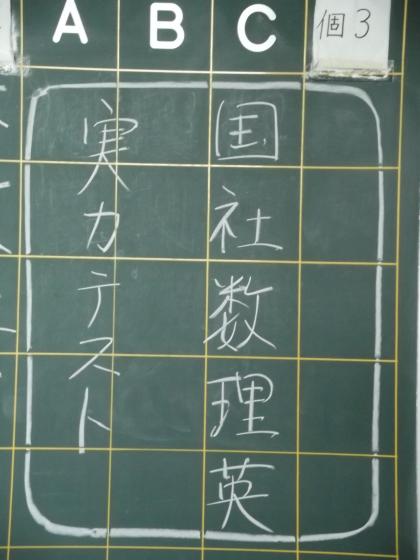 A B C 個3
国社数理英
実力テスト